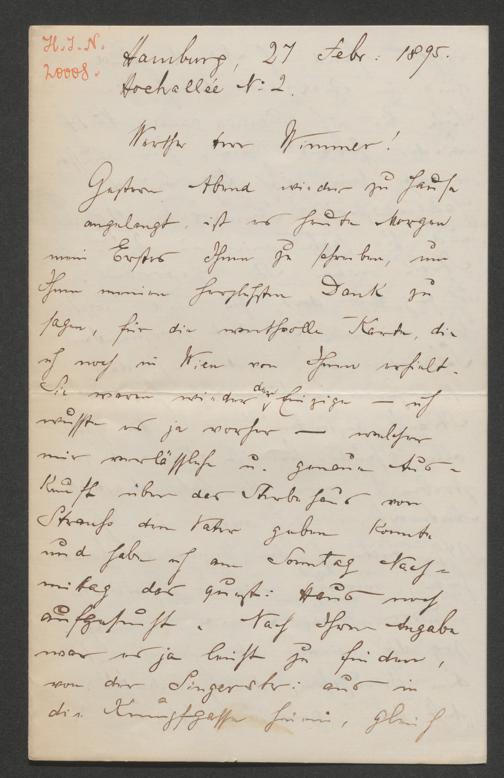 H. I. N.
20008.
Hamburg, 27 Febr: 1895.
Hochallée No: 2.
Werther Herr Wimmer!
Gestern Abend wieder zu Hause
angelangt, ist es heute Morgen
mein Erstes Ihnen zu schreiben, um
Ihnen meinen herzlichsten Dank zu
sagen, für die werthvolle Karte, die
ich noch in Wien von Ihnen erhielt.
Sie waren wieder der Einzige — ich
wusste es ja vorher — welcher
mir verlässliche u. genaue Aus-
kunft über das Sterbehaus von
Strauss dem Vater geben konnte
und habe ich am Sonntag Nach-
mittag das quest: Haus noch
aufgesucht. Nach Ihrer Angabe
war es ja leicht zu finden,
von der Singerstr: aus in
die Kumpfgasse hinein, gleich